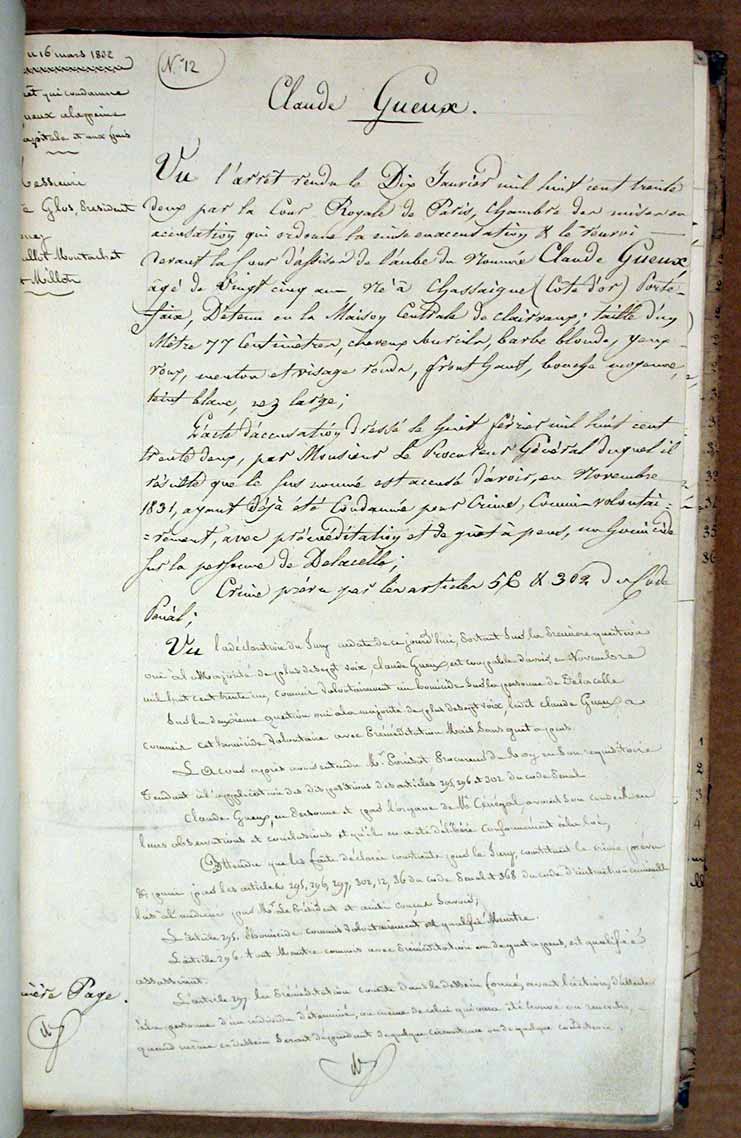 du 16 mars 1832
qui condamne
Gueux à la peine
capitale et aux frais
Messieurs
Glos, Président
Montachet
Millot
N° 12
Claude Gueux.
Vu l'arrêt rendu le Dix Janvier mil huit cent trente
deux par la Cour Royale de Paris, chambre des mises en
accusation qui ordonne la mise en accusation & le renvoi
devant la Cour d'assises de l'aube du Nommé Claude Gueux
âgé de Vingt cinq ans Né à Chassaigne (Cote d'or) Porte-
faix, Détenu en la Maison Centrale de clairvaux; taille d'un
Mètre 77 Centimètres, cheveux & sourcils, barbe blonds, yeux
roux, menton et visage ronds, front haut, bouche moyenne,
teint blanc, nez large;
L'acte d'accusation dressé le huit février mil huit cent
trente deux, par Monsieur Le Procureur Général duquel il
résulte que le sus nommé est accusé d'avoir, en Novembre
1831, ayant déjà été Condamné pour Crime, Commis volontai-
=rement, avec préméditation et de guet à pens, un homicide
sur la personne de Delacelle;
Crime prévu par les articles 56 & 302 du Code
Pénal;
Vu la déclaration du Jury en date de ce jourd'hui, portant sur la première question
oui à la Majorité de plus de sept voix, claude Gueux est coupable d'avoir, en Novembre
mil huit cent trente un, commis volontairement un homicide sur la personne de Delacelle
Sur la deuxième question oui à la majorité de plus de sept voix, ledit claude Gueux a
commis cet homicide volontaire avec préméditation Mais Sans guet à pens.
La Cour après avoir entendu Mr. Procureur du Roy en son requisitoire
tendant à l'application des dispositions des articles 295, 296 et 302 du code Penal.
Claude Gueux, en personne et par l'organe de Me, avocat son conseil en
leurs observations et conclusions et qu'il en a été délibéré conformément à la loi,
Attendu que les faits déclarés constants par le Jury, constituent le crime prévu
& puni par les articles 295, 296, 297, 302, 12, 36 du code Penal et 368 du code d'instruction criminelle
lus à l'audience par Mr. Le Président et ainsi conçus savoir;
L'article 295. L'homicide commis volontairement est qualifié Meurtre.
L'article 296. tout Meurtre commis avec préméditation ou de guet à pens, est qualifié
assassinat.
L'article 297 La préméditation consiste dans le dessein formé, avant l'action, d'attenter
à la personne d'un individu déterminé, ou même de celui qui sera trouvé ou rencontré,
quand même ce dessein serait dépendant de quelque circonstance ou de quelque condition.
Page.